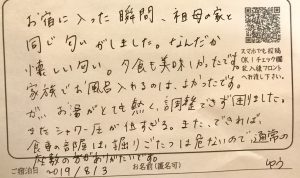 お宿に入った瞬間、祖母の家と
同じ匂いがしました。なんだか
懐しい匂い。夕食も美味しかったです。
家族でお風呂入れるのは、よかったです。
が、お湯がとても熱く、調整できず困りました。
またシャワー圧が低すぎる。また、できれば、
食事の部屋は、掘りごたつは危ないので、通常の
座敷の方がありがたいです。
スマホでも投稿
OK!チェック欄
記入後フロント
へお渡し下さい。
ご宿泊日 2019/8/3 お名前(匿名可) ゆう